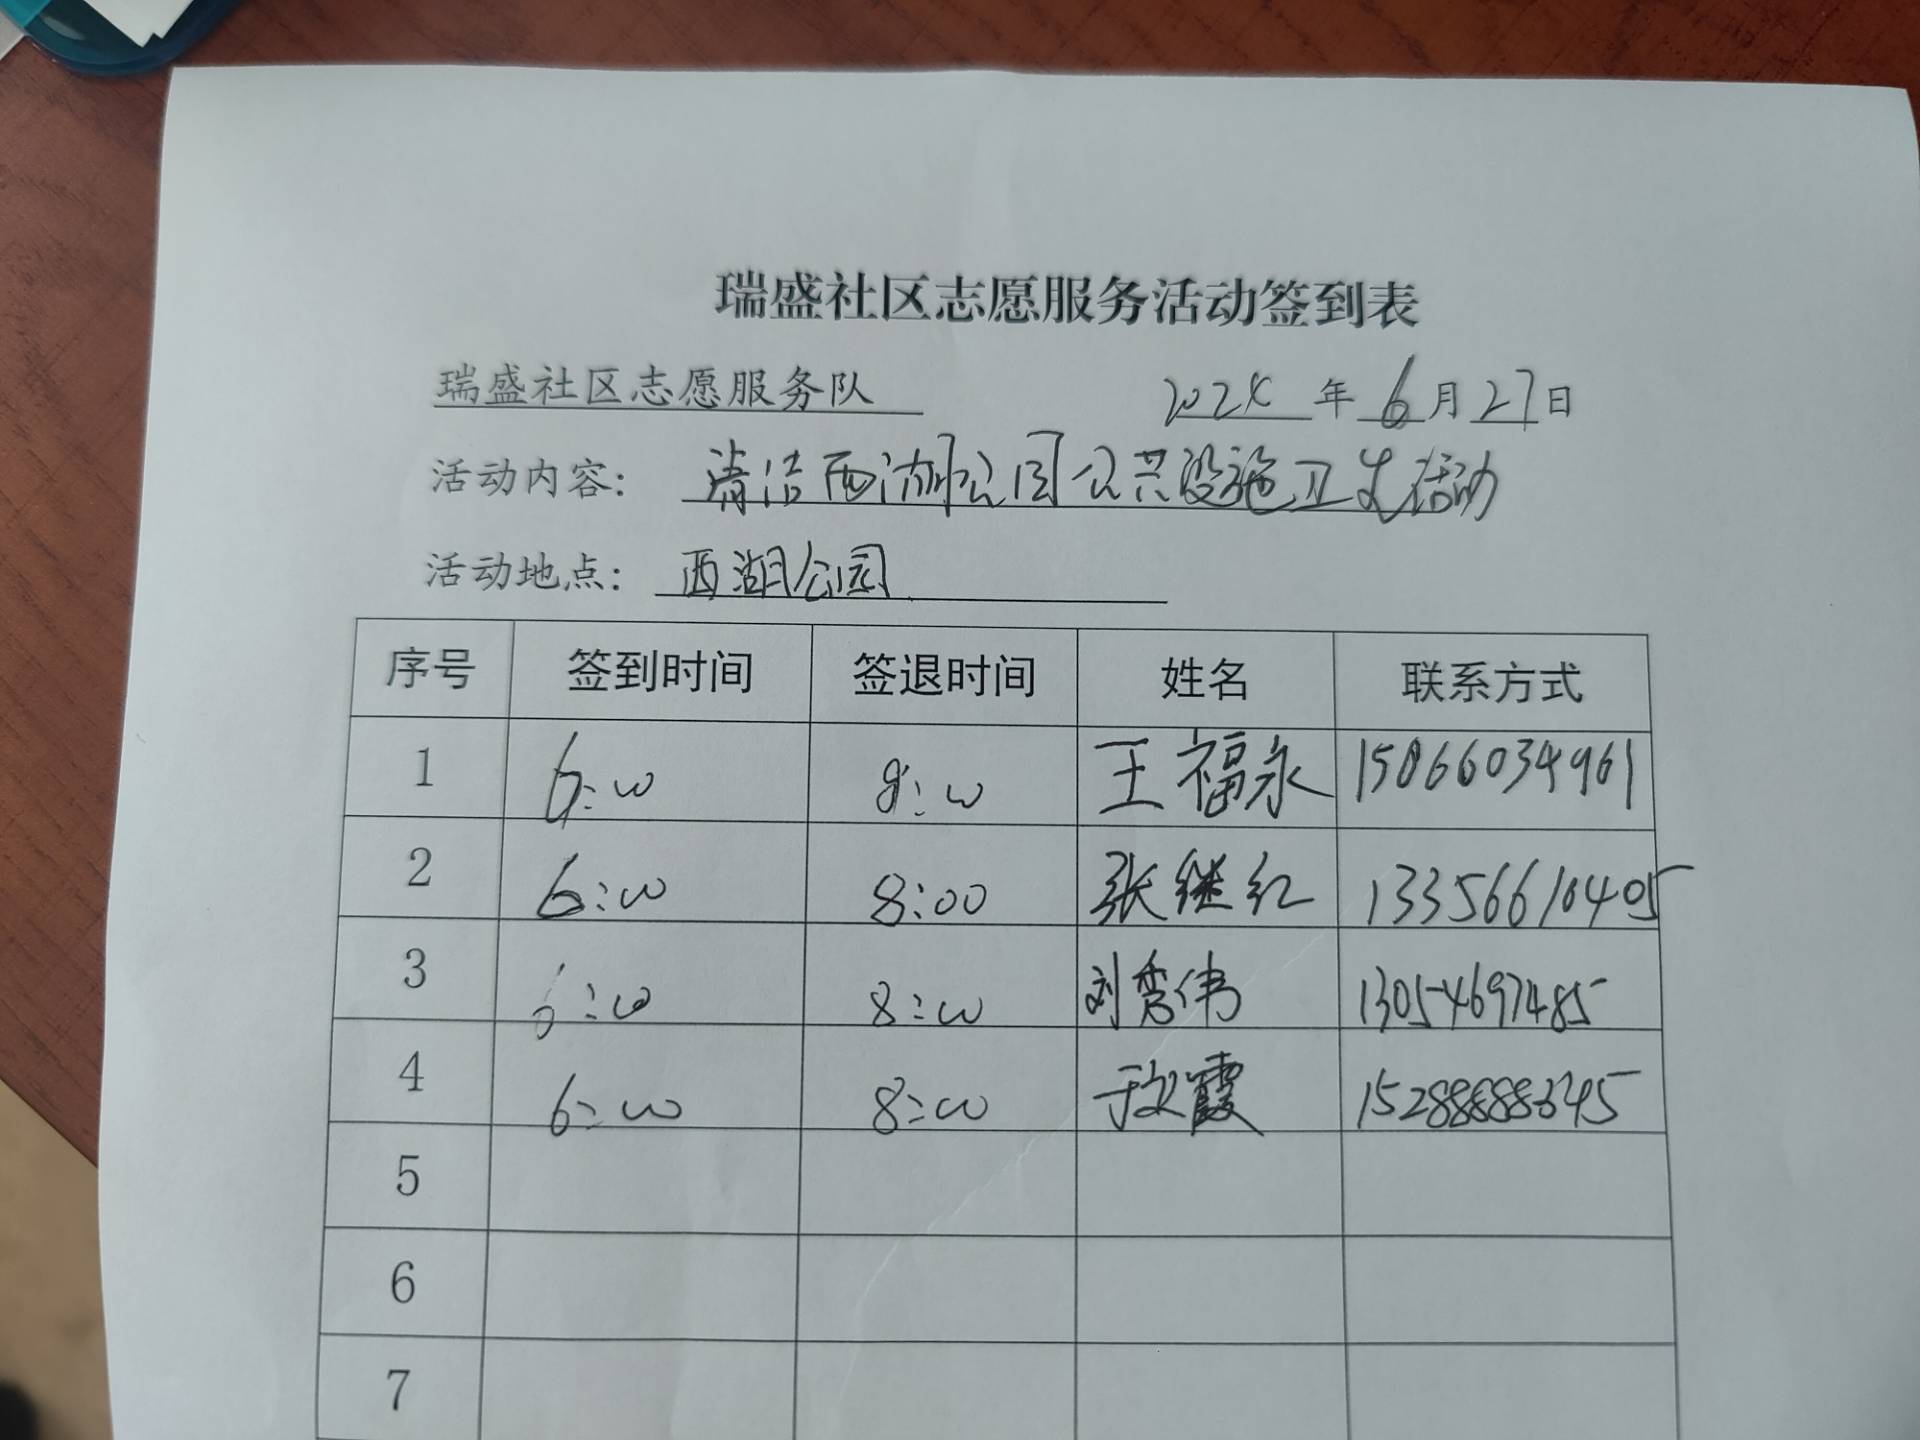 瑞盛社区志愿服务活动签到表
瑞盛社区志愿服务队 2024 年 6 月 27 日
活动内容: 清洁西湖公园公共设施卫生活动
活动地点: 西湖公园
序号 签到时间 签退时间 姓名 联系方式
1 6:00 8:00 王福永 15866034961
2 6:00 8:00 张继红 13356610405
3 6:00 8:00 刘秀伟 13054697485
4 6:00 8:00 于文霞
5
6
7